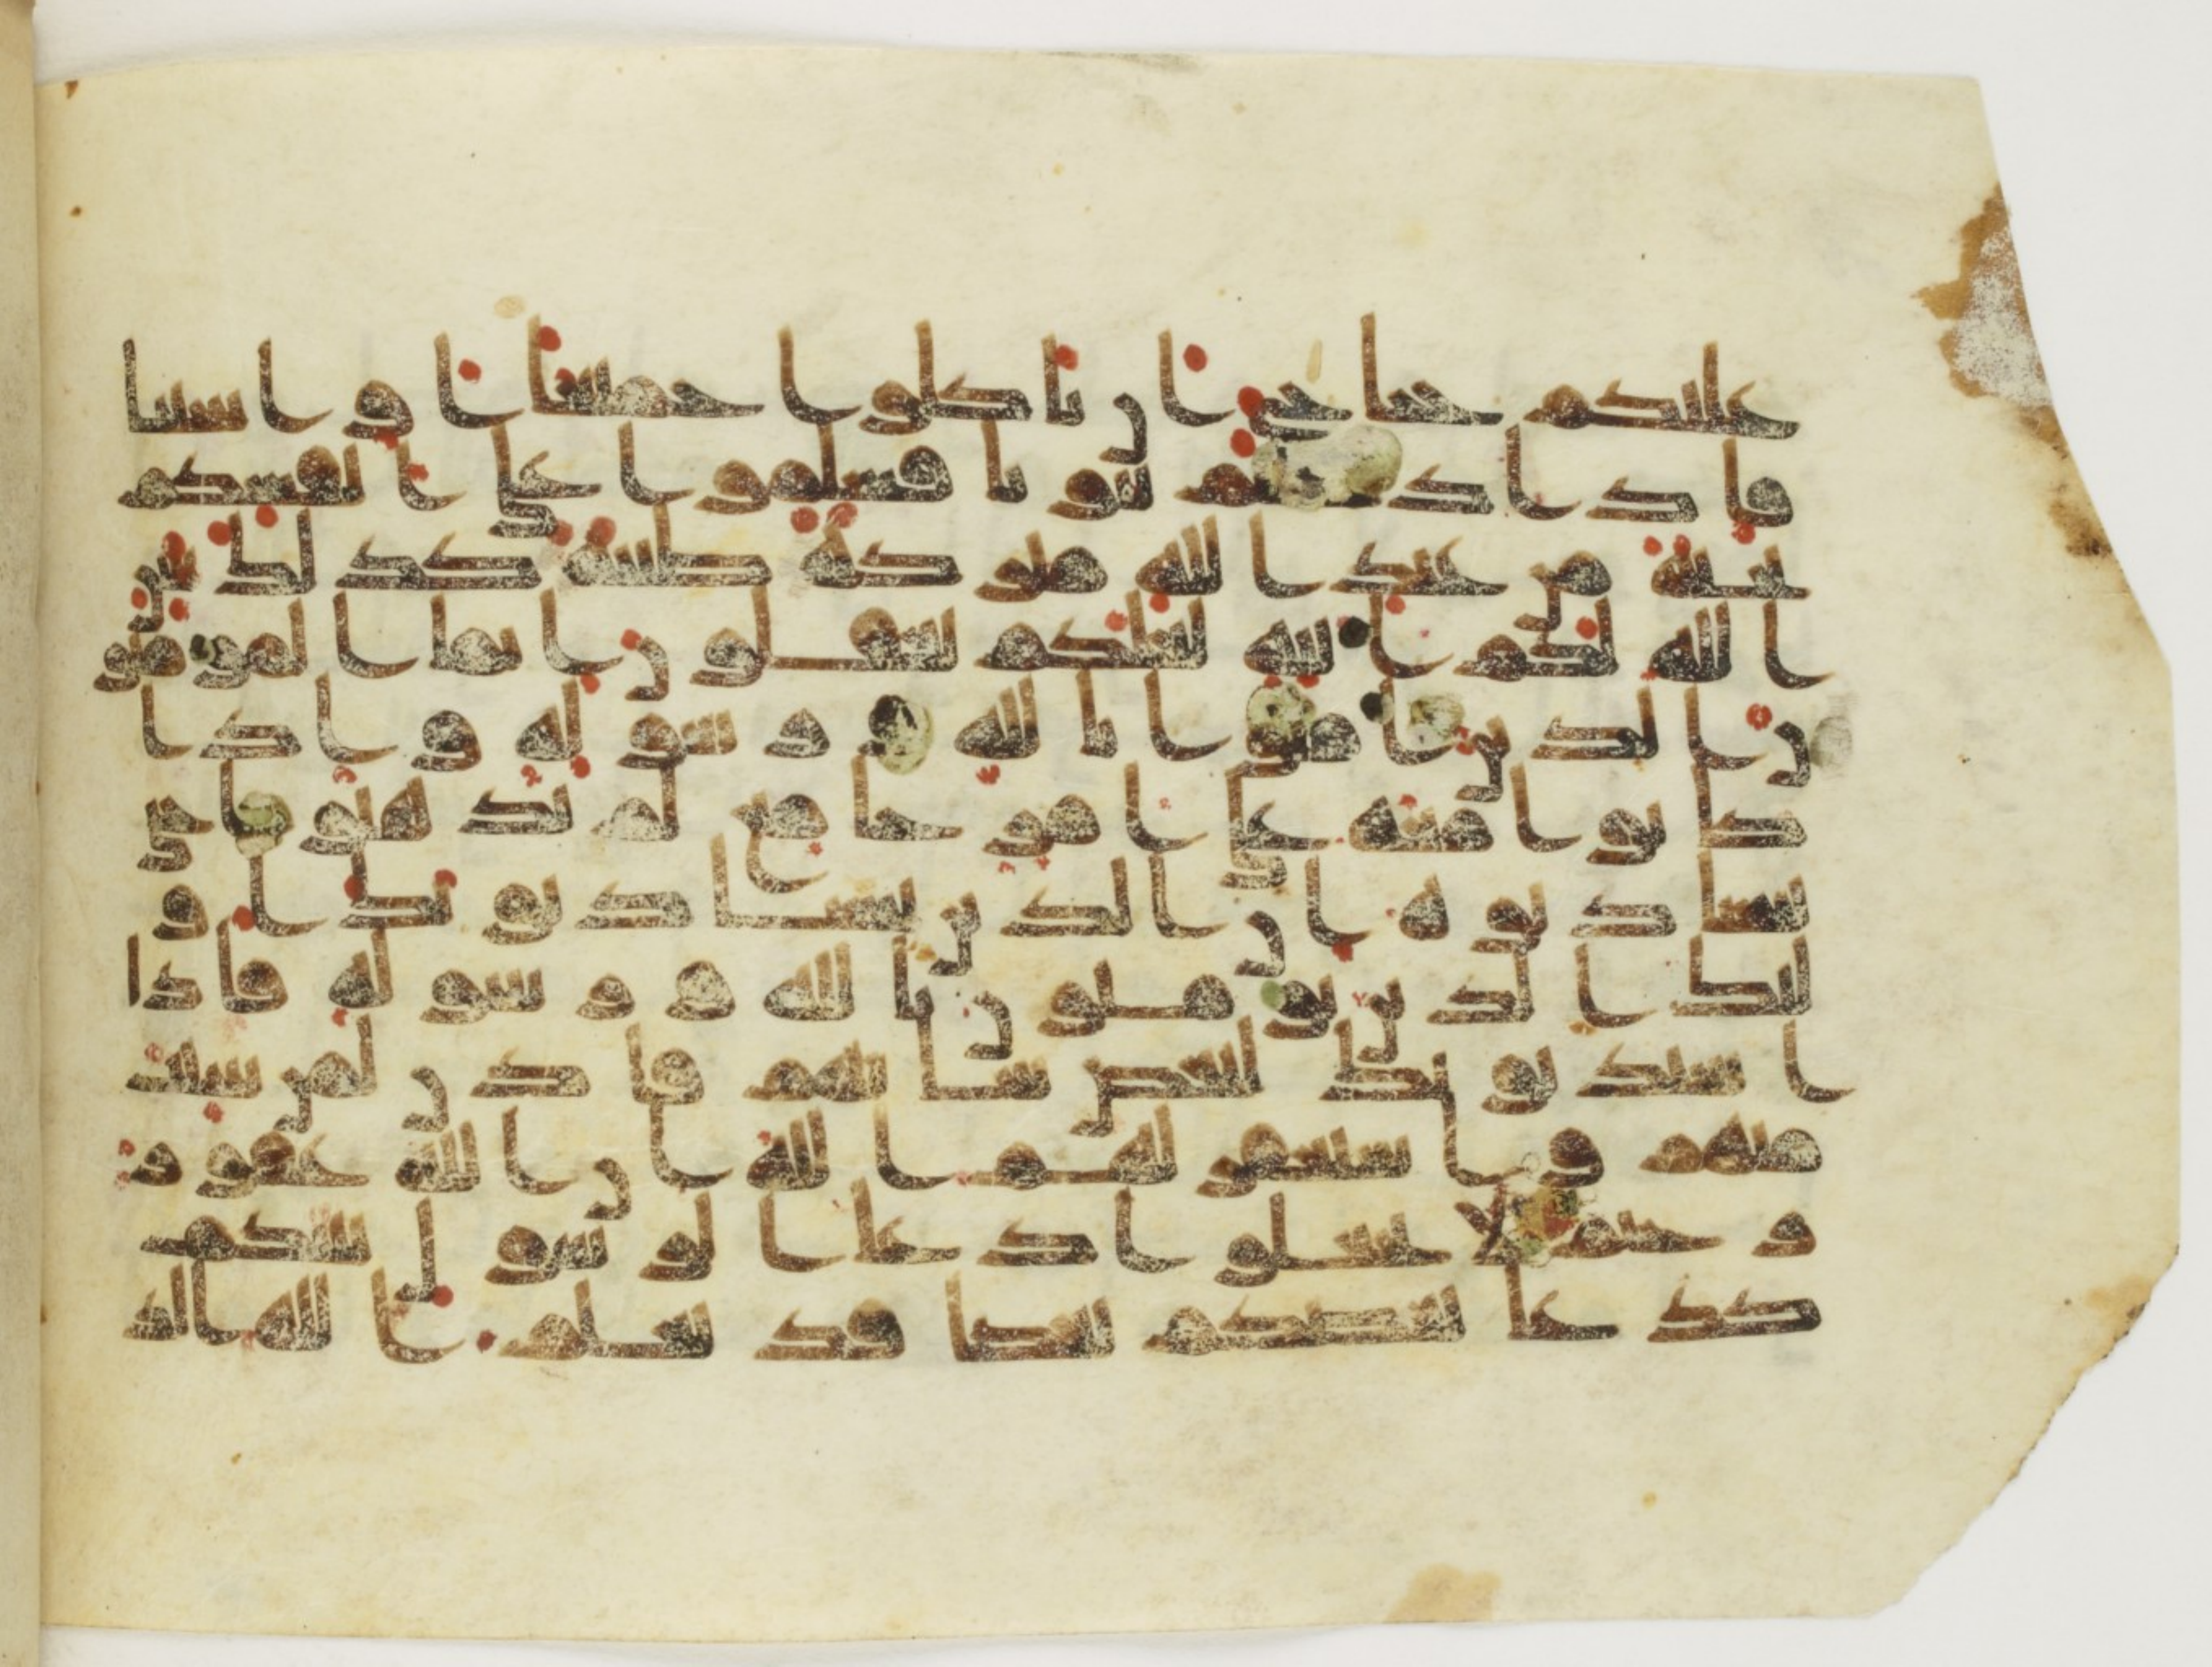 عليكم جناح ان تاكلوا جميعا او اشتاتا
فاذا دخلتم بيوتا فسلموا على انفسكم
تحية من عند الله مبركة طيبة كذلك يبين
الله لكم الايت لعلكم تعقلون انما المومنو
ن الذين امنوا بالله ورسوله واذا
كانوا معه على امر جامع لم يذهبوا حتى
يستاذنوه ان الذين يستاذنونك او
لئك الذين يومنون بالله ورسوله فاذا
استذنوك لبعض شانهم فاذن لمن شئت
منهم واستغفر لهم الله ان الله غفور
رحيم لا تجعلوا دعا الرسول بينكم
كدعا بعضكم بعضا قد يعلم الله الذ